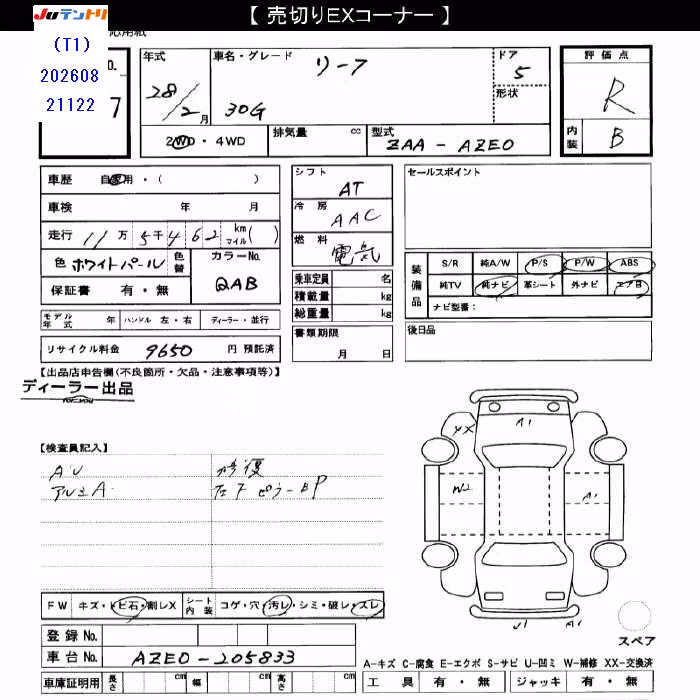 【 売切りEXコーナー 】
JUテントリ
応用紙
(T1)
202608
21122
No.
7
年式
28/2月
車名・グレード
リーフ
30G
ドア
5
形状
評価点
R
内装
B
2WD・4WD
排気量 cc
型式
ZAA - AZE0
車歴 自家用・( )
車検 年 月
走行 11万 5千462 km マイル( )
色 ホワイトパール 色替
カラーNo.
QAB
保証書 有・無
モデル年式 年 ハンドル 左・右 ディーラー・並行
リサイクル料金 9650 円 預託済
シフト
AT
冷房
AAC
燃料
電気
乗車定員 名
積載量 kg
総重量 kg
書類期限
月 日
セールスポイント
装備品
S/R 純A/W P/S P/W ABS
純TV 純ナビ 革シート 外ナビ エアB
ナビ型番:
後日品
【出品店申告欄(不良箇所・欠品・注意事項等)】
ディーラー出品
【検査員記入】
AU
アルミA
修復
左F ピラーBP
XX
A1
W2
A1
U1
A1
FW キズ・トビ石・割レX
シート内装 コゲ・穴・汚レ・シミ・破レ・スレ
登録 No.
車台 No. AZE0-205833
車庫証明用 長さ cm 幅 cm 高さ cm
スペア
A-キズ C-腐食 E-エクボ S-サビ U-凹ミ W-補修 XX-交換済
工具 有・無 ジャッキ 有・無